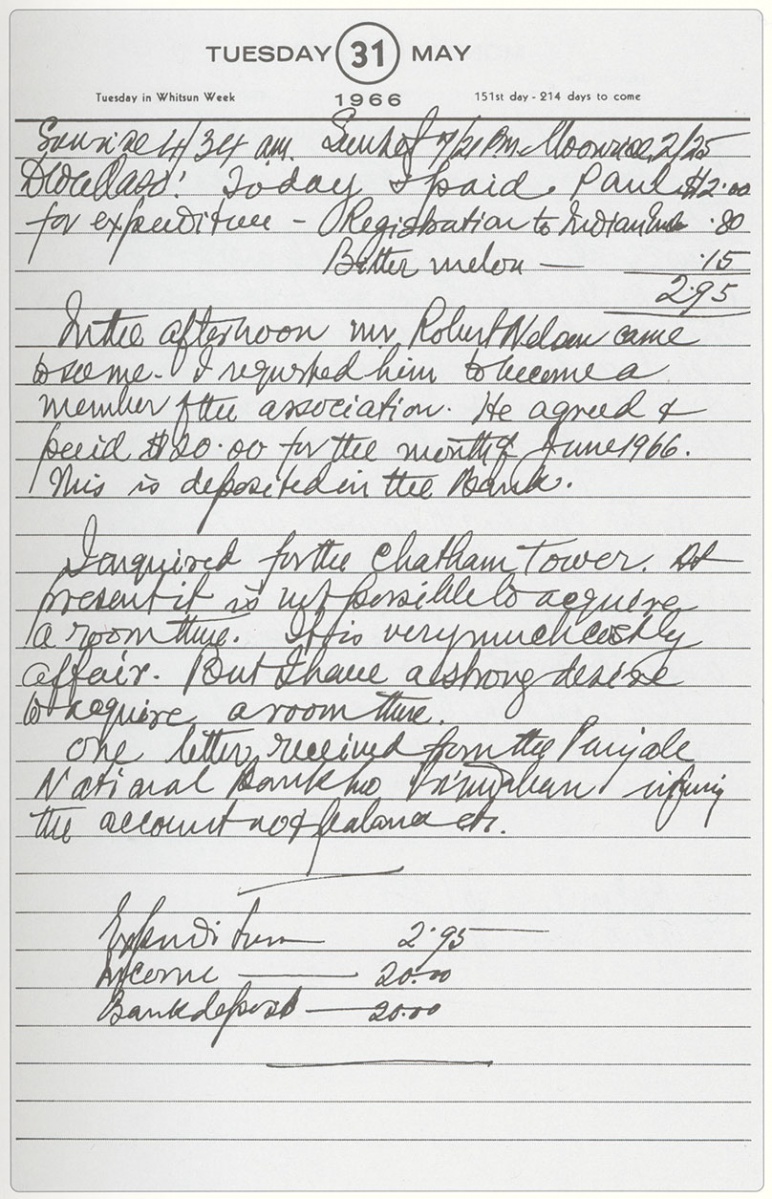 TUESDAY 31 MAY
Tuesday in Whitsun Week 1966 151st day - 214 days to come
Sunrise 4/34 a.m. Sunset 7/21 P.m. Moonrise 2/25
Today I paid Paul $2.00
for expenditure - Registration to Indian .80
Bitter melon — .15
2.95
In the afternoon mr Robert Nelson came
to see me. I requested him to become a
member of the association. He agreed &
paid $20.00 for the month of June 1966.
This is deposited in the Bank.
I enquired for the Chatham Tower. At
present it is not possible to acquire
a room there. It is very much costly
affair. But I have a strong desire
to acquire a room there.
One letter received from the Punjab
National Bank
the account no & balance etc.
Expenditure 2.95
Income — 20.00
Bank deposit — 20.00